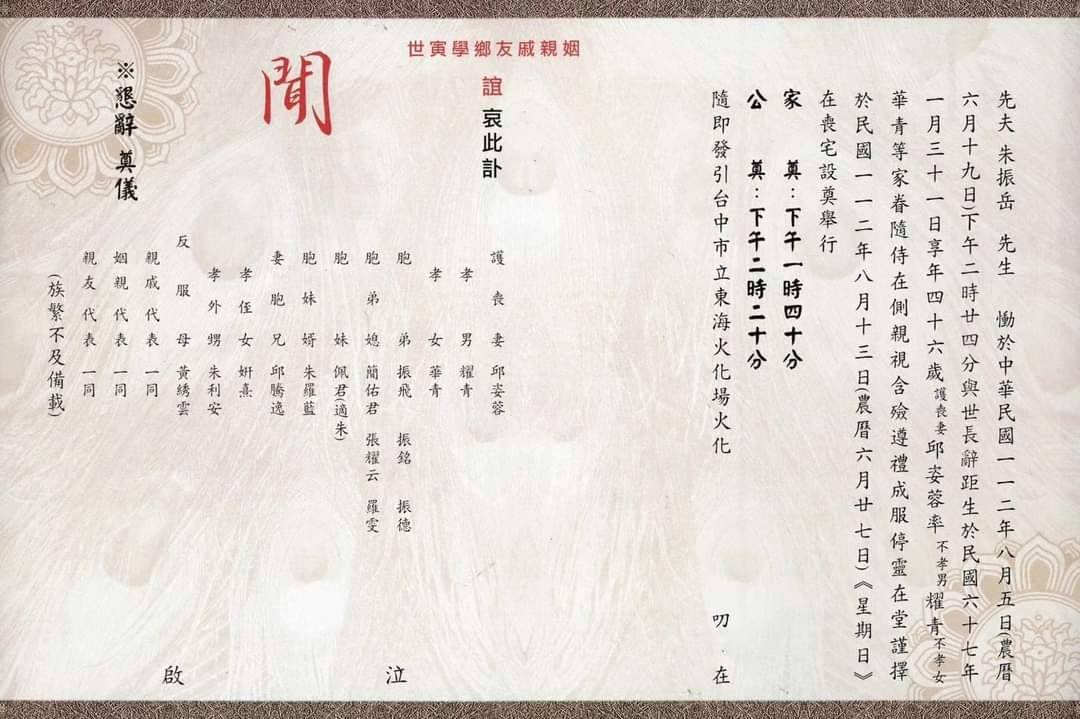 先夫 朱振岳 先生 慟於中華民國一一二年八月五日(農曆
六月十九日)下午二時廿四分與世長辭距生於民國六十七年
一月三十一日享年四十六歲護喪妻邱姿蓉率不孝男耀青不孝女
華青等家眷隨侍在側親視含殮遵禮成服停靈在堂謹擇
於民國一一二年八月十三日(農曆六月廿七日)《星期日》
在喪宅設奠舉行
家 奠：下午一時四十分
公 奠：下午二時二十分
隨即發引台中市立東海火化場火化 叨 在
世寅學鄉友戚親姻
誼 哀此訃
聞
護喪妻 邱姿蓉
孝男 耀青
孝女 華青
胞弟 振飛 振銘 振德
胞弟媳 簡佑君 張耀云 羅雯
胞妹 佩君(適朱)
胞妹婿 朱羅藍
妻胞兄 邱騰逸
孝侄女 妍熹
孝外甥 朱利安
反服母 黃綉雲
親戚代表 一同
姻親代表 一同
親友代表 一同
(族繁不及備載)
泣
啟
※懇辭 奠儀